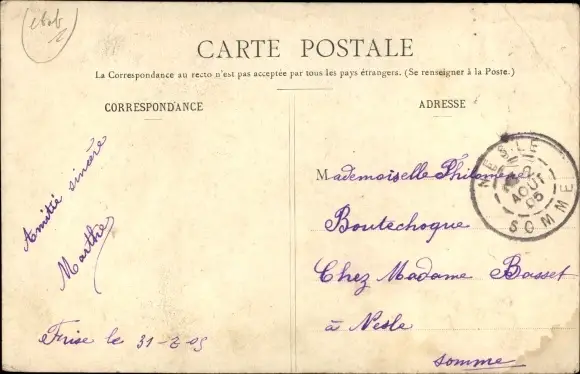 CARTE POSTALE
La Correspondance au recto n'est pas acceptée par tous les pays étrangers. (Se renseigner à la Poste.)
CORRESPONDANCE
ADRESSE
Amitié sincère
Marthe
Frise le 31-7-05
Mademoiselle Philomène
Boutechoque
Chez Madame Basset
à Nesle
Somme
NESLE
AOUT
05
SOMME